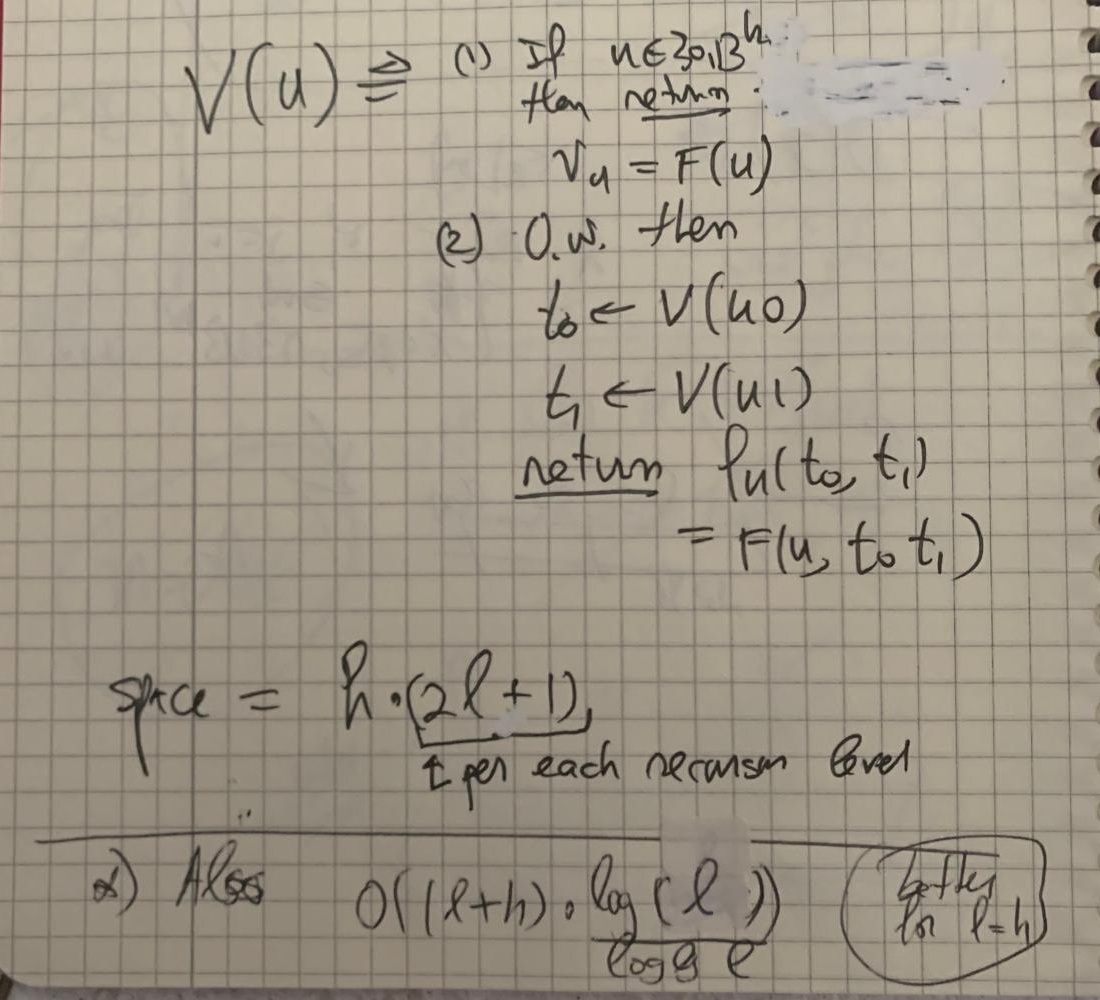 V(u) ≜ (1) If u∈{0,1}^h
then return
V_u = F(u)
(2) O.W. then
t_0 ← V(u0)
t_1 ← V(u1)
return f_u(t_0, t_1)
= F(u, t_0 t_1)
space = h·(2l+1),
per each recursion level
2) Also O((l+h)·log(l))
better
for l=h